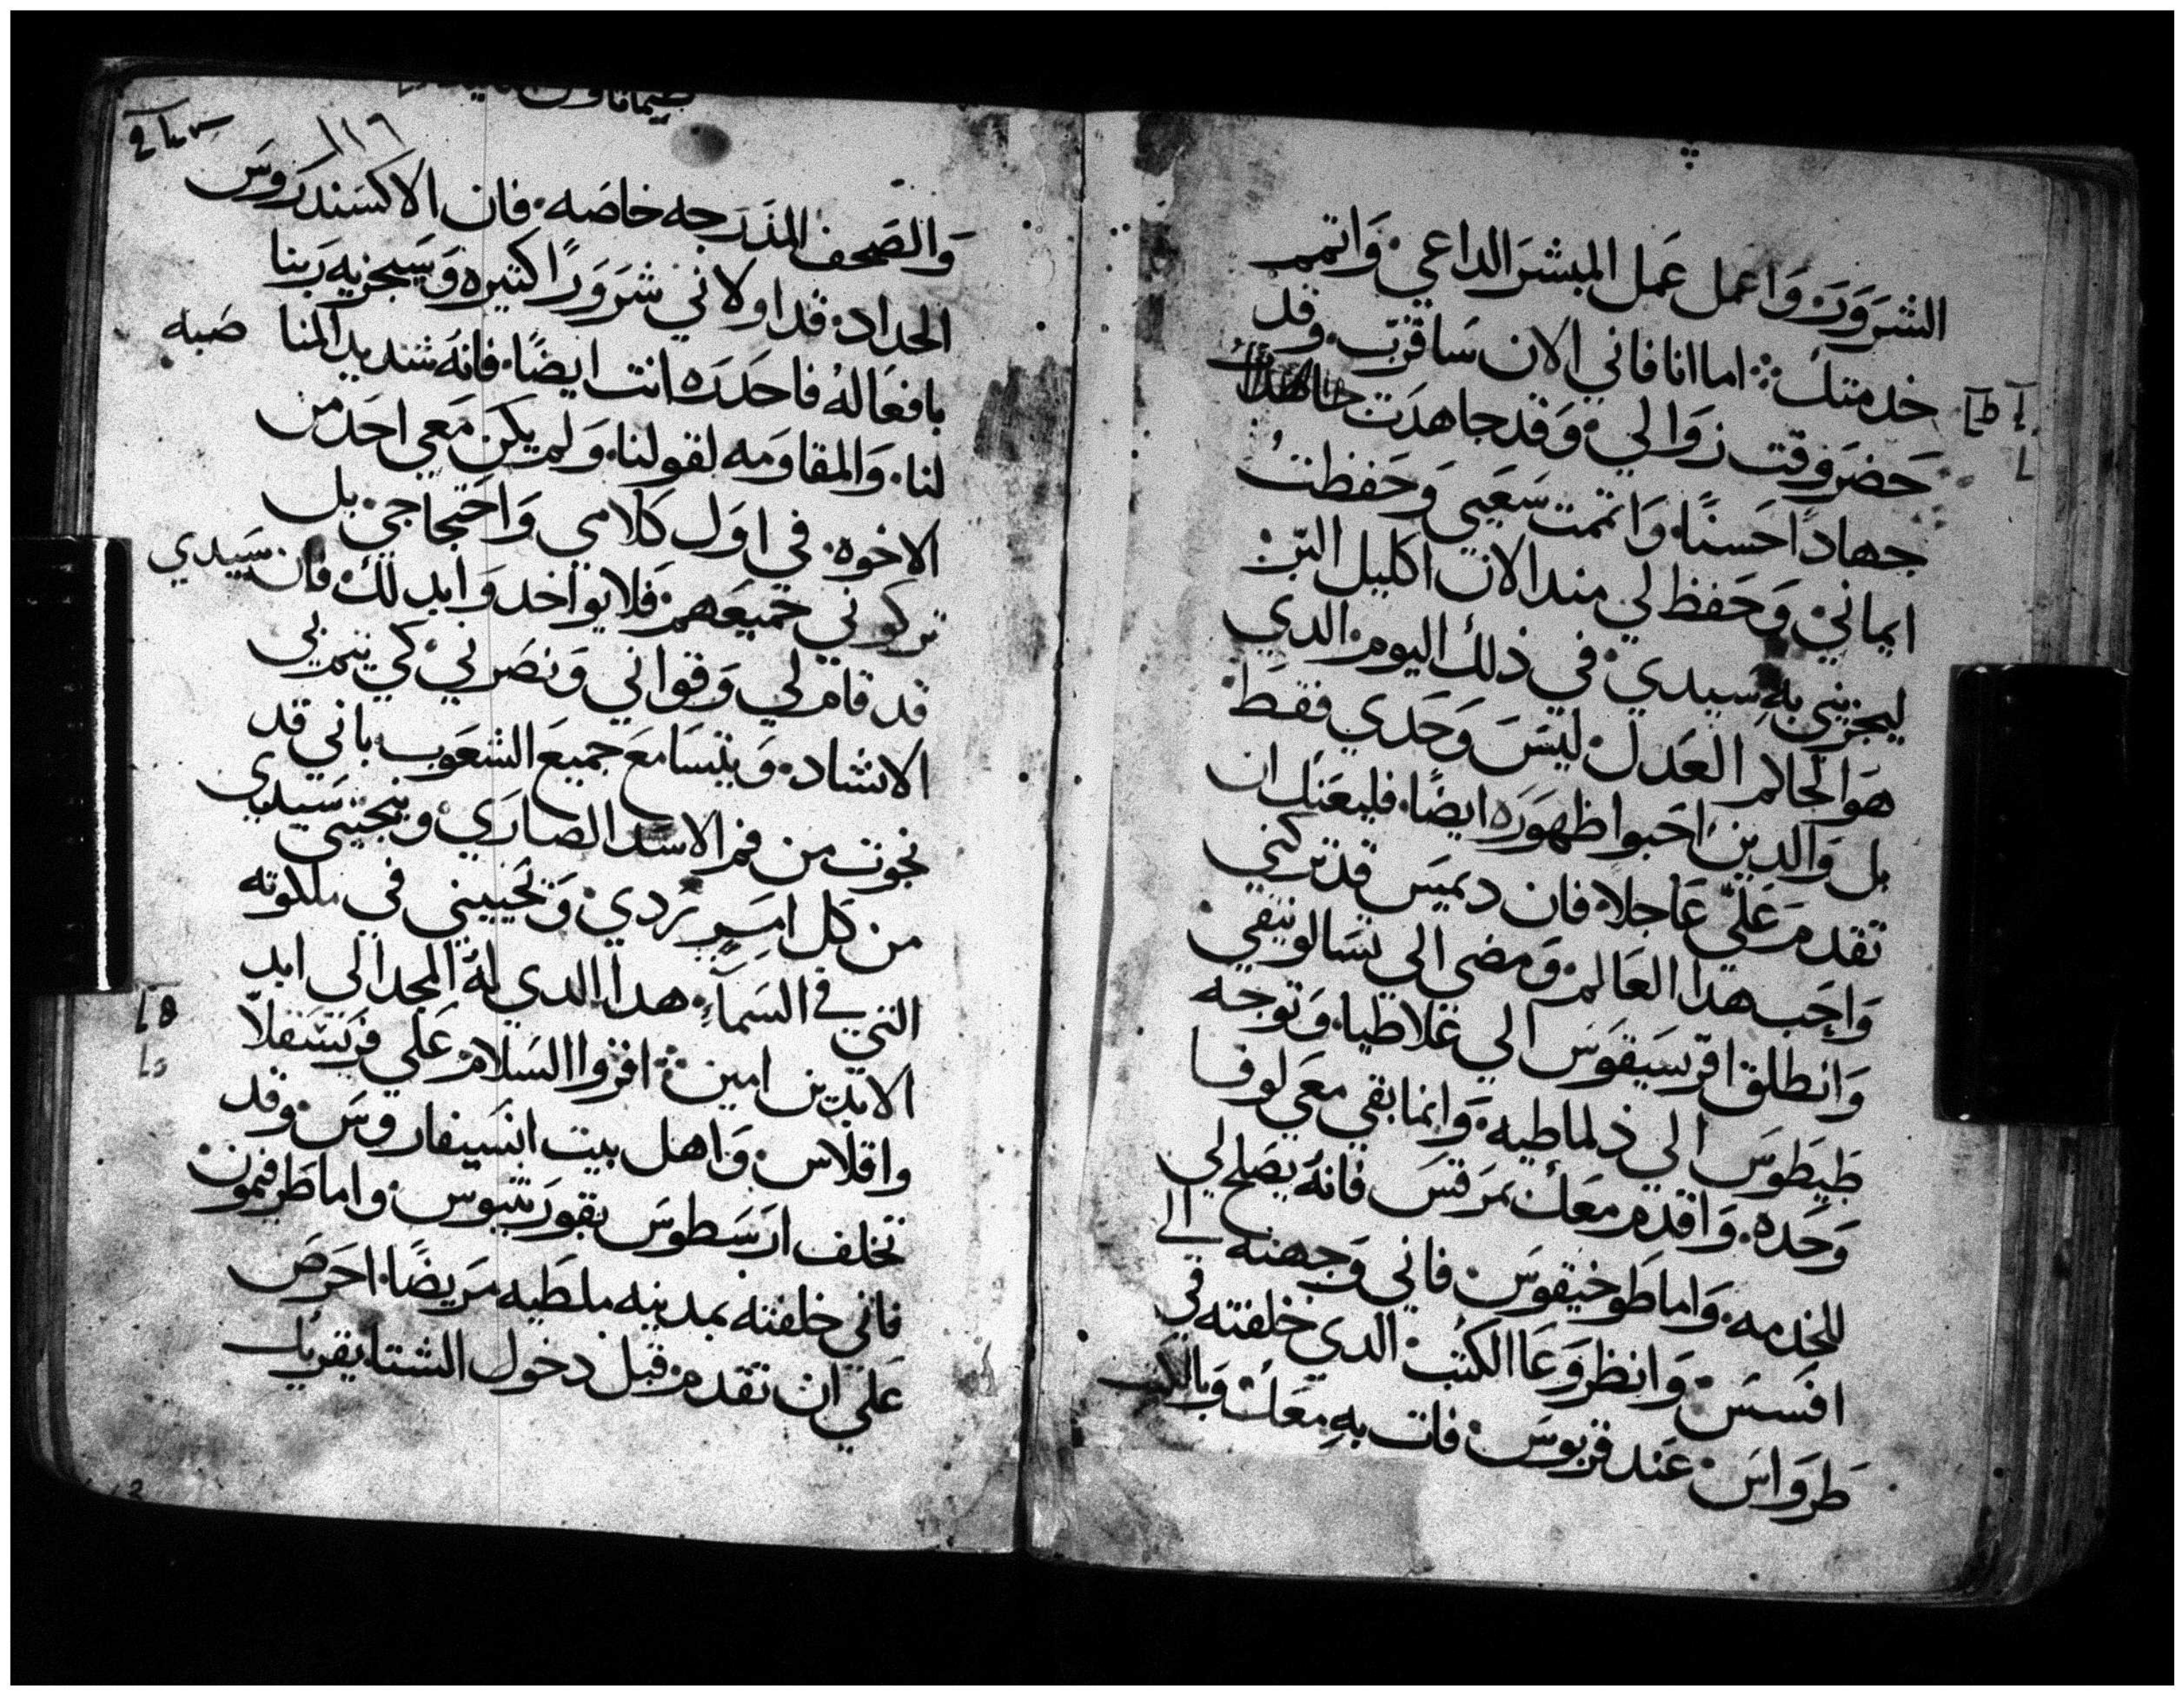 الشرور، واعمل عمل المبشر الداعي، واتمم
خدمتك ܀ اما انا فاني الان ساقرب، وقد
حضر وقت زوالي، وقد جاهدت
جهادًا حسنًا، واتممت سعيي وحفظت
ايماني، وحفظ لي مند الان اكليل البر،
ليجزيني به سيدي، في ذلك اليوم، الدي
هو الحاكم العدل، ليس وحدي فقط،
بل والدين احبوا ظهوره ايضًا، فليعنك ان
تقدم عليّ عاجلا، فان ديميس قد تركني
واحب هدا العالم، ومضى الى تسالونيقي،
وانطلق اقرسيقوس الي غلاطيا، وتوجه
طيطوس الي ذلماطيه، وانما بقي معي لوفا
وحده، واقدم معك بمرقس فانه يصلح لي
للخدمه، واما طوخيقوس، فاني وجهته الي
افسس، وانظر وعا الكتب، الدي خلفته في
طرواس، عند قربوس، فات به معك، وبالكتب
١١٦
والصحف المدرجه خاصه، فان الاكسندروس
الحداد، قد اولاني شرورًا كتيره، وسيجزيه ربنا
بافعاله فاحدره انت ايضًا، فانه شديد المنا صبه
لنا، والمقاومه لقولنا، ولم يكن معي احد من
الاخوه، في اول كلامي، واحتجاجي، بل
تركوني جميعهم، فلا يواخدوا بدلك، فان سيدي
قد قام لي، وقواني، ونصرني، كي يتم بي
الانشاد، ويتسامع جميع الشعوب، باني قد
نجوت من فم الاسد الضاري، وينجيني سيدي
من كل امرٍ ردي، ويحييني في ملكوته
التي في السماء، هدا الدي له المجد الى ابد
الابدين امين ܀ اقروا السلام، علي فرسقلا
واقلاس، واهل بيت انسيفاروس، وقد
تخلف ارسطوس بقورنتيوس، واما طرفيمون،
فاني خلفته بمدينه ملطيه مريضًا، احرص
علي ان تقدم، قبل دخول الشتا، يقريك